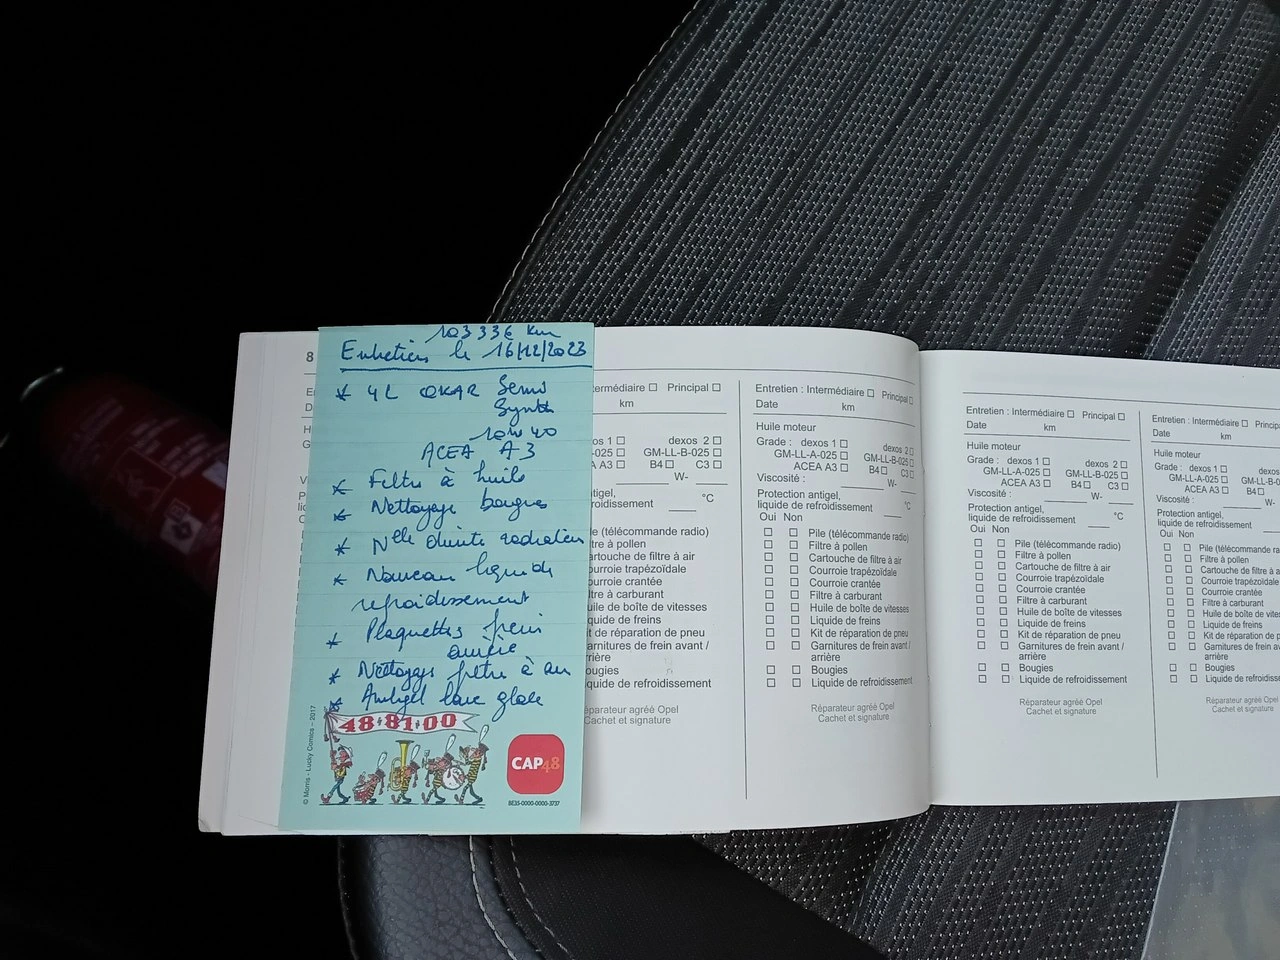 103336 km
Entretien le 16/12/2023
* 4L OKAR Semi
Synth
10W40
ACEA A3
* Filtre à huile
* Nettoyage bougies
* Nelle durite radiateur
* Nouveau liquide
refroidissement
* Plaquettes frein
arrière
* Nettoyage filtre à air
* Antigel lave glace
48•81•00
CAP48
BE35-0000-0000-3737
© Morris - Lucky Comics – 2017
8
ermédiaire ☐ Principal ☐
km
os 1 ☐ dexos 2 ☐
-025 ☐ GM-LL-B-025 ☐
A A3 ☐ B4 ☐ C3 ☐
W-
tigel,
roidissement °C
ile (télécommande radio)
tre à pollen
artouche de filtre à air
ourroie trapézoïdale
ourroie crantée
iltre à carburant
uile de boîte de vitesses
quide de freins
it de réparation de pneu
arnitures de frein avant /
rrière
ougies
iquide de refroidissement
éparateur agréé Opel
Cachet et signature
Entretien : Intermédiaire ☐ Principal ☐
Date km
Huile moteur
Grade : dexos 1 ☐ dexos 2 ☐
GM-LL-A-025 ☐ GM-LL-B-025 ☐
ACEA A3 ☐ B4 ☐ C3 ☐
Viscosité : W-
Protection antigel,
liquide de refroidissement °C
Oui Non
☐ ☐ Pile (télécommande radio)
☐ ☐ Filtre à pollen
☐ ☐ Cartouche de filtre à air
☐ ☐ Courroie trapézoïdale
☐ ☐ Courroie crantée
☐ ☐ Filtre à carburant
☐ ☐ Huile de boîte de vitesses
☐ ☐ Liquide de freins
☐ ☐ Kit de réparation de pneu
☐ ☐ Garnitures de frein avant /
arrière
☐ ☐ Bougies
☐ ☐ Liquide de refroidissement
Réparateur agréé Opel
Cachet et signature
Entretien : Intermédiaire ☐ Principal ☐
Date km
Huile moteur
Grade : dexos 1 ☐ dexos 2 ☐
GM-LL-A-025 ☐ GM-LL-B-025 ☐
ACEA A3 ☐ B4 ☐ C3 ☐
Viscosité : W-
Protection antigel,
liquide de refroidissement °C
Oui Non
☐ ☐ Pile (télécommande radio)
☐ ☐ Filtre à pollen
☐ ☐ Cartouche de filtre à air
☐ ☐ Courroie trapézoïdale
☐ ☐ Courroie crantée
☐ ☐ Filtre à carburant
☐ ☐ Huile de boîte de vitesses
☐ ☐ Liquide de freins
☐ ☐ Kit de réparation de pneu
☐ ☐ Garnitures de frein avant /
arrière
☐ ☐ Bougies
☐ ☐ Liquide de refroidissement
Réparateur agréé Opel
Cachet et signature
Entretien : Intermédiaire ☐
Date km
Huile moteur
Grade : dexos 1 ☐
GM-LL-A-025 ☐ GM-LL-B
ACEA A3 ☐ B4 ☐
Viscosité : W-
Protection antigel,
liquide de refroidissement
Oui Non
☐ ☐ Pile (télécommande ra
☐ ☐ Filtre à pollen
☐ ☐ Cartouche de filtre à a
☐ ☐ Courroie trapézoïdale
☐ ☐ Courroie crantée
☐ ☐ Filtre à carburant
☐ ☐ Huile de boîte de vites
☐ ☐ Liquide de freins
☐ ☐ Kit de réparation de p
☐ ☐ Garnitures de frein av
arrière
☐ ☐ Bougies
☐ ☐ Liquide de refroidisse
Réparateur agréé Opel
Cachet et signature